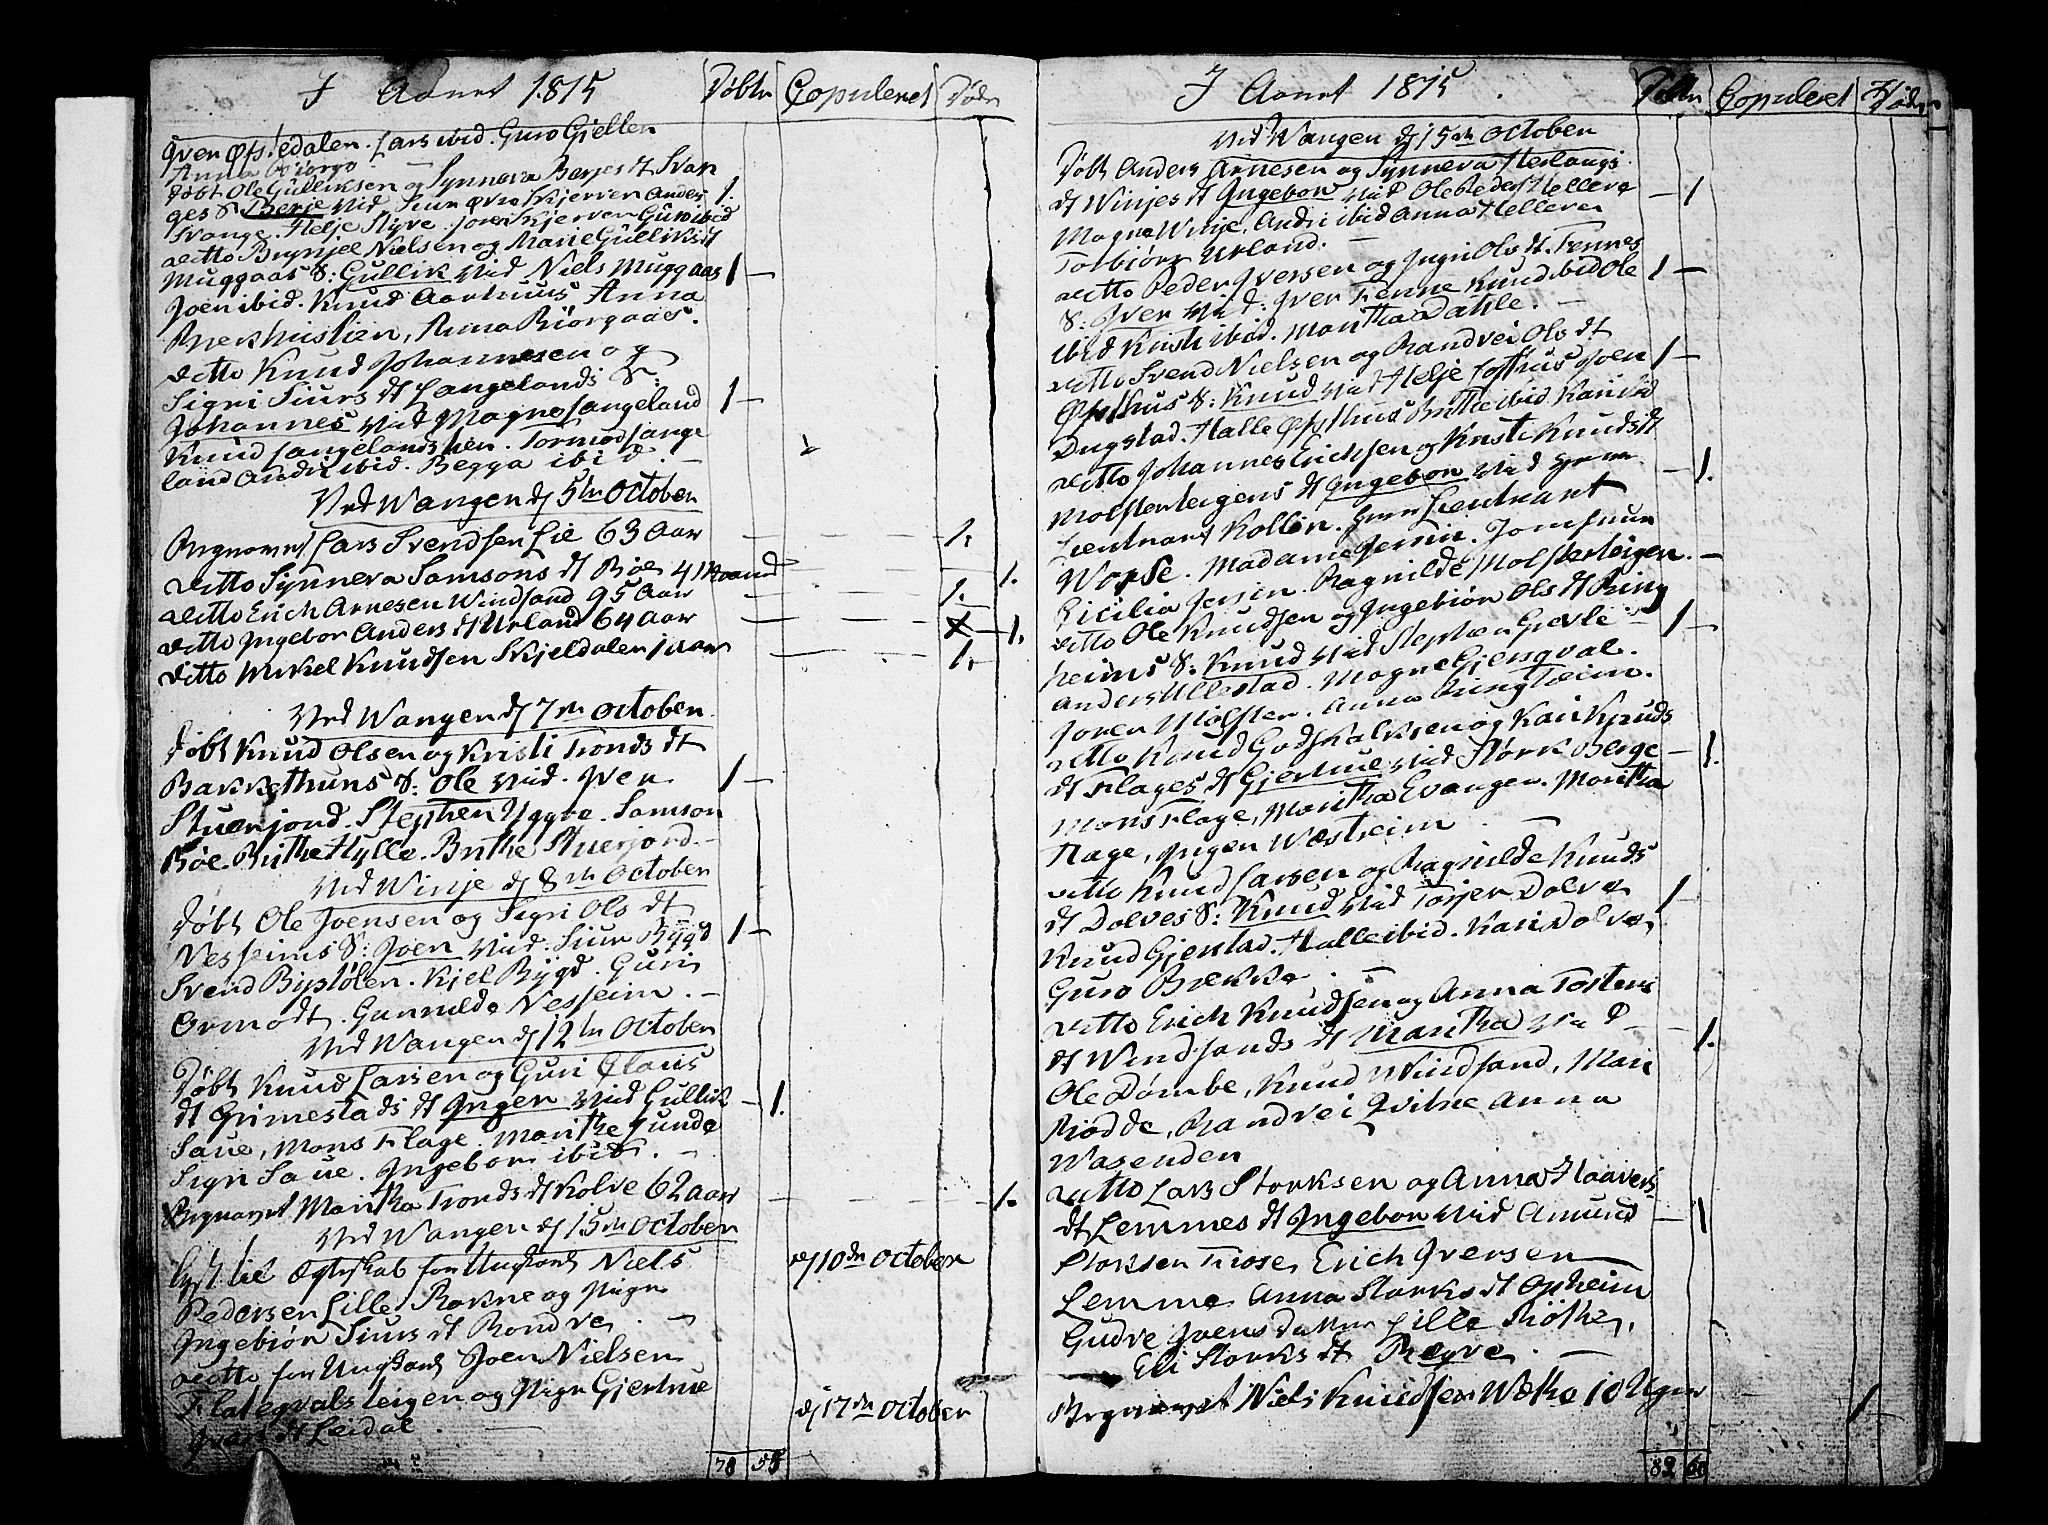 I Aaret 1815 Døbte Copuleret Døde
Iver Øfstedalen. Lars ibid. Guro Gjelle
Anna Biørgo
Døbt Ole Gulliksen og Synneva Berjes dt Svan
ges S: Berje Vid Siur Kjerven Anders 1.
Svange. Helje Styve Joren Kjerven Guro ibid
ditto Brynjel Nielsen og Mari Gulliks dt
Muggaas S: Gullik Vid Niels Muggaas 1 —
Joen ibid. Knud Aarhuus Anna
Brekhuslien, Anna Biørgaas.
ditto Knud Johannesen og
Sigri Siurs dt Langelands S:
Johannes Vid Magne Langeland 1 —
Knud Langelandslien. Tormod Lange
land Andri ibid. Begga ibid. —
Ved Wangen d 5te October
Begravet Lars Svendsen Lie 63 Aar 1.
ditto Synneva Samsons dt Bøe 4 Maaned 1.
ditto Erich Arnesen Windsand 95 Aar 1.
ditto Ingebor Anders dt Urland 64 Aar 1.
ditto Mikel Knudsen Skjeldalen 1 aar 1.
Ved Wangen d 7de October
Døbt Knud Olsen og Kristi Tronds dt
Bakkethuns S: Ole Vid. Iver 1 —
Stuerjord. Stephen Yggre. Samson
Bøe. Brithe Hylle. Brithe Stuerjord. —
Ved Winje d 8de October
Døbt Ole Joensen og Sigri Ols dt
Nesheims S: Joen Vid: Siur Bygd 1 —
Svend Bystølen. Kjel Bygd. Guri
Ormodt. Gunnilde Nesheim. —
Ved Wangen d 12te October
Døbt Knud Larsen og Guri Claus
dt Grimestads dt Ingen Vid Gullik — 1.
Saue, Mons Flage. Marithe Gunde
Sigri Saue. Ingebor ibid. —
Begravet Maritha Tronds dt Kolve 62 aar 1.
Ved Wangen d 15de October
Lyst til Ægteskab for Ungkarl Niels d 10de October
Pedersen Lille Rokne og Pige
Ingebiør Siurs dt Rondve. —
ditto for Ungkarl Joen Nielsen
Flateqvalsteigen og Pige Gjertrue d 17de October
Ivars dt Leidal.
78 58
I Aaret 1815. Copuleret Døde
Ved Wangen d 15de October
Døbt Anders Arnesen og Synneva Herlaugs
dt Winjes dt Ingebor Vid Ole Reder Hellere — 1
Magne Winje, Andri ibid Anna Helleren
Torbiør Urland. —
ditto Peder Iversen og Ingri Ols dt. Tennes
S: Iver Vid: Iver Tenne Knud ibid Ole 1 —
ibid Kristi ibid. Maritha Dahle. —
ditto Svend Nielsen og Randvei Ols dt
Øfsthus S: Knud Vid Helje Lofthus Joen 1 —
Dugstad. Halle Øfsthus Brithe ibid Kari ibid
ditto Johannes Erichsen og Kristi Knuds dt
Molsterteigens dt Ingebor Vid Herr — 1.
Lieutnant Kollin. Herr Lieutnant
Worse. Madame Jersin. Jomfrue
Cicilia Jersin. Ragnilde Molsterteigen. —
ditto Ole Knudsen og Ingebiør Ols dt Ring
heims S: Knud Vid Stephen Grevle 1 —
Anders Ullestad. Magne Gjerqval.
Joren Mølster. Anna Ringheim.
ditto Knud Godskalksen og Kari Knuds
dt Flages dt Gjertrue Vid Størk Berge — 1.
Mons Flage, Maritha Evanger. Maritha
Flage, Ingen Westreim —
ditto Knud Larsen og Ragnilde Knuds
dt Dolves S: Knud Vid Torjer Dolve 1 —
Knud Gjerstad. Halle ibid. Kari Dolve,
Guro Brekke. —
ditto Erich Knudsen og Anna Tostens
dt Windsands dt Maritha Vid — 1.
Ole Dømbe, Knud Windsand, Mari
Rodde, Randvei Qvitne Anna
Wasenden
ditto Lars Storksen og Anna Haavers
dt Lemmes dt Ingebor Vid Amund — 1
Storksen Trose, Erich Iversen
Lemme Anna Storks dt Opheim
Gudve Joens datter Lille Røthe,
Eli Storks dt Regve. —
Begravet Niels Knudsen Wethe 10 Uger — 1 —
82 60